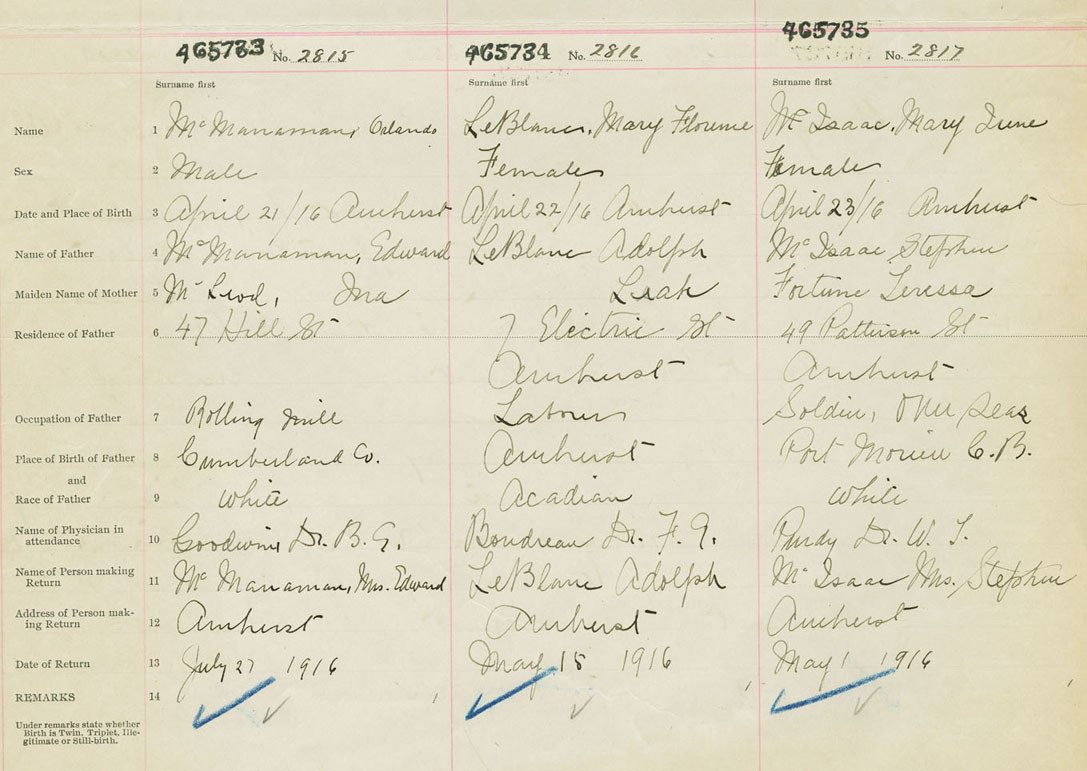 465733 No. 2815 465734 No. 2816 465735 No. 2817
Surname first Surname first Surname first
Name 1 Mc Manaman, Orlando LeBlanc, Mary Florence Mc Isaac, Mary June
Sex 2 Male Female Female
Date and Place of Birth 3 April 21/16 Amherst April 22/16 Amherst April 23/16 Amherst
Name of Father 4 Mc Manaman, Edward LeBlanc Adolph Mc Isaac, Stephen
Maiden Name of Mother 5 Mc Leod, Ina Leah Fortune Teressa
Residence of Father 6 47 Hill St 7 Electric St 49 Patterson St
Amherst Amherst
Occupation of Father 7 Rolling mill Labourer Soldier, Over Seas
Place of Birth of Father 8 Cumberland Co. Amherst Port Morien C.B.
and
Race of Father 9 White Acadian White
Name of Physician in
attendance 10 Goodwin, Dr. B. G. Boudreau Dr. F. G. Purdy Dr. W. T.
Name of Person making
Return 11 Mc Manaman, Mrs. Edward LeBlanc Adolph Mc Isaac Mrs. Stephen
Address of Person mak-
ing Return 12 Amherst Amherst Amherst
Date of Return 13 July 27 1916 May 15 1916 May 1 1916
REMARKS 14
Under remarks state whether
Birth is Twin, Triplet, Ille-
gitimate or Still-birth.